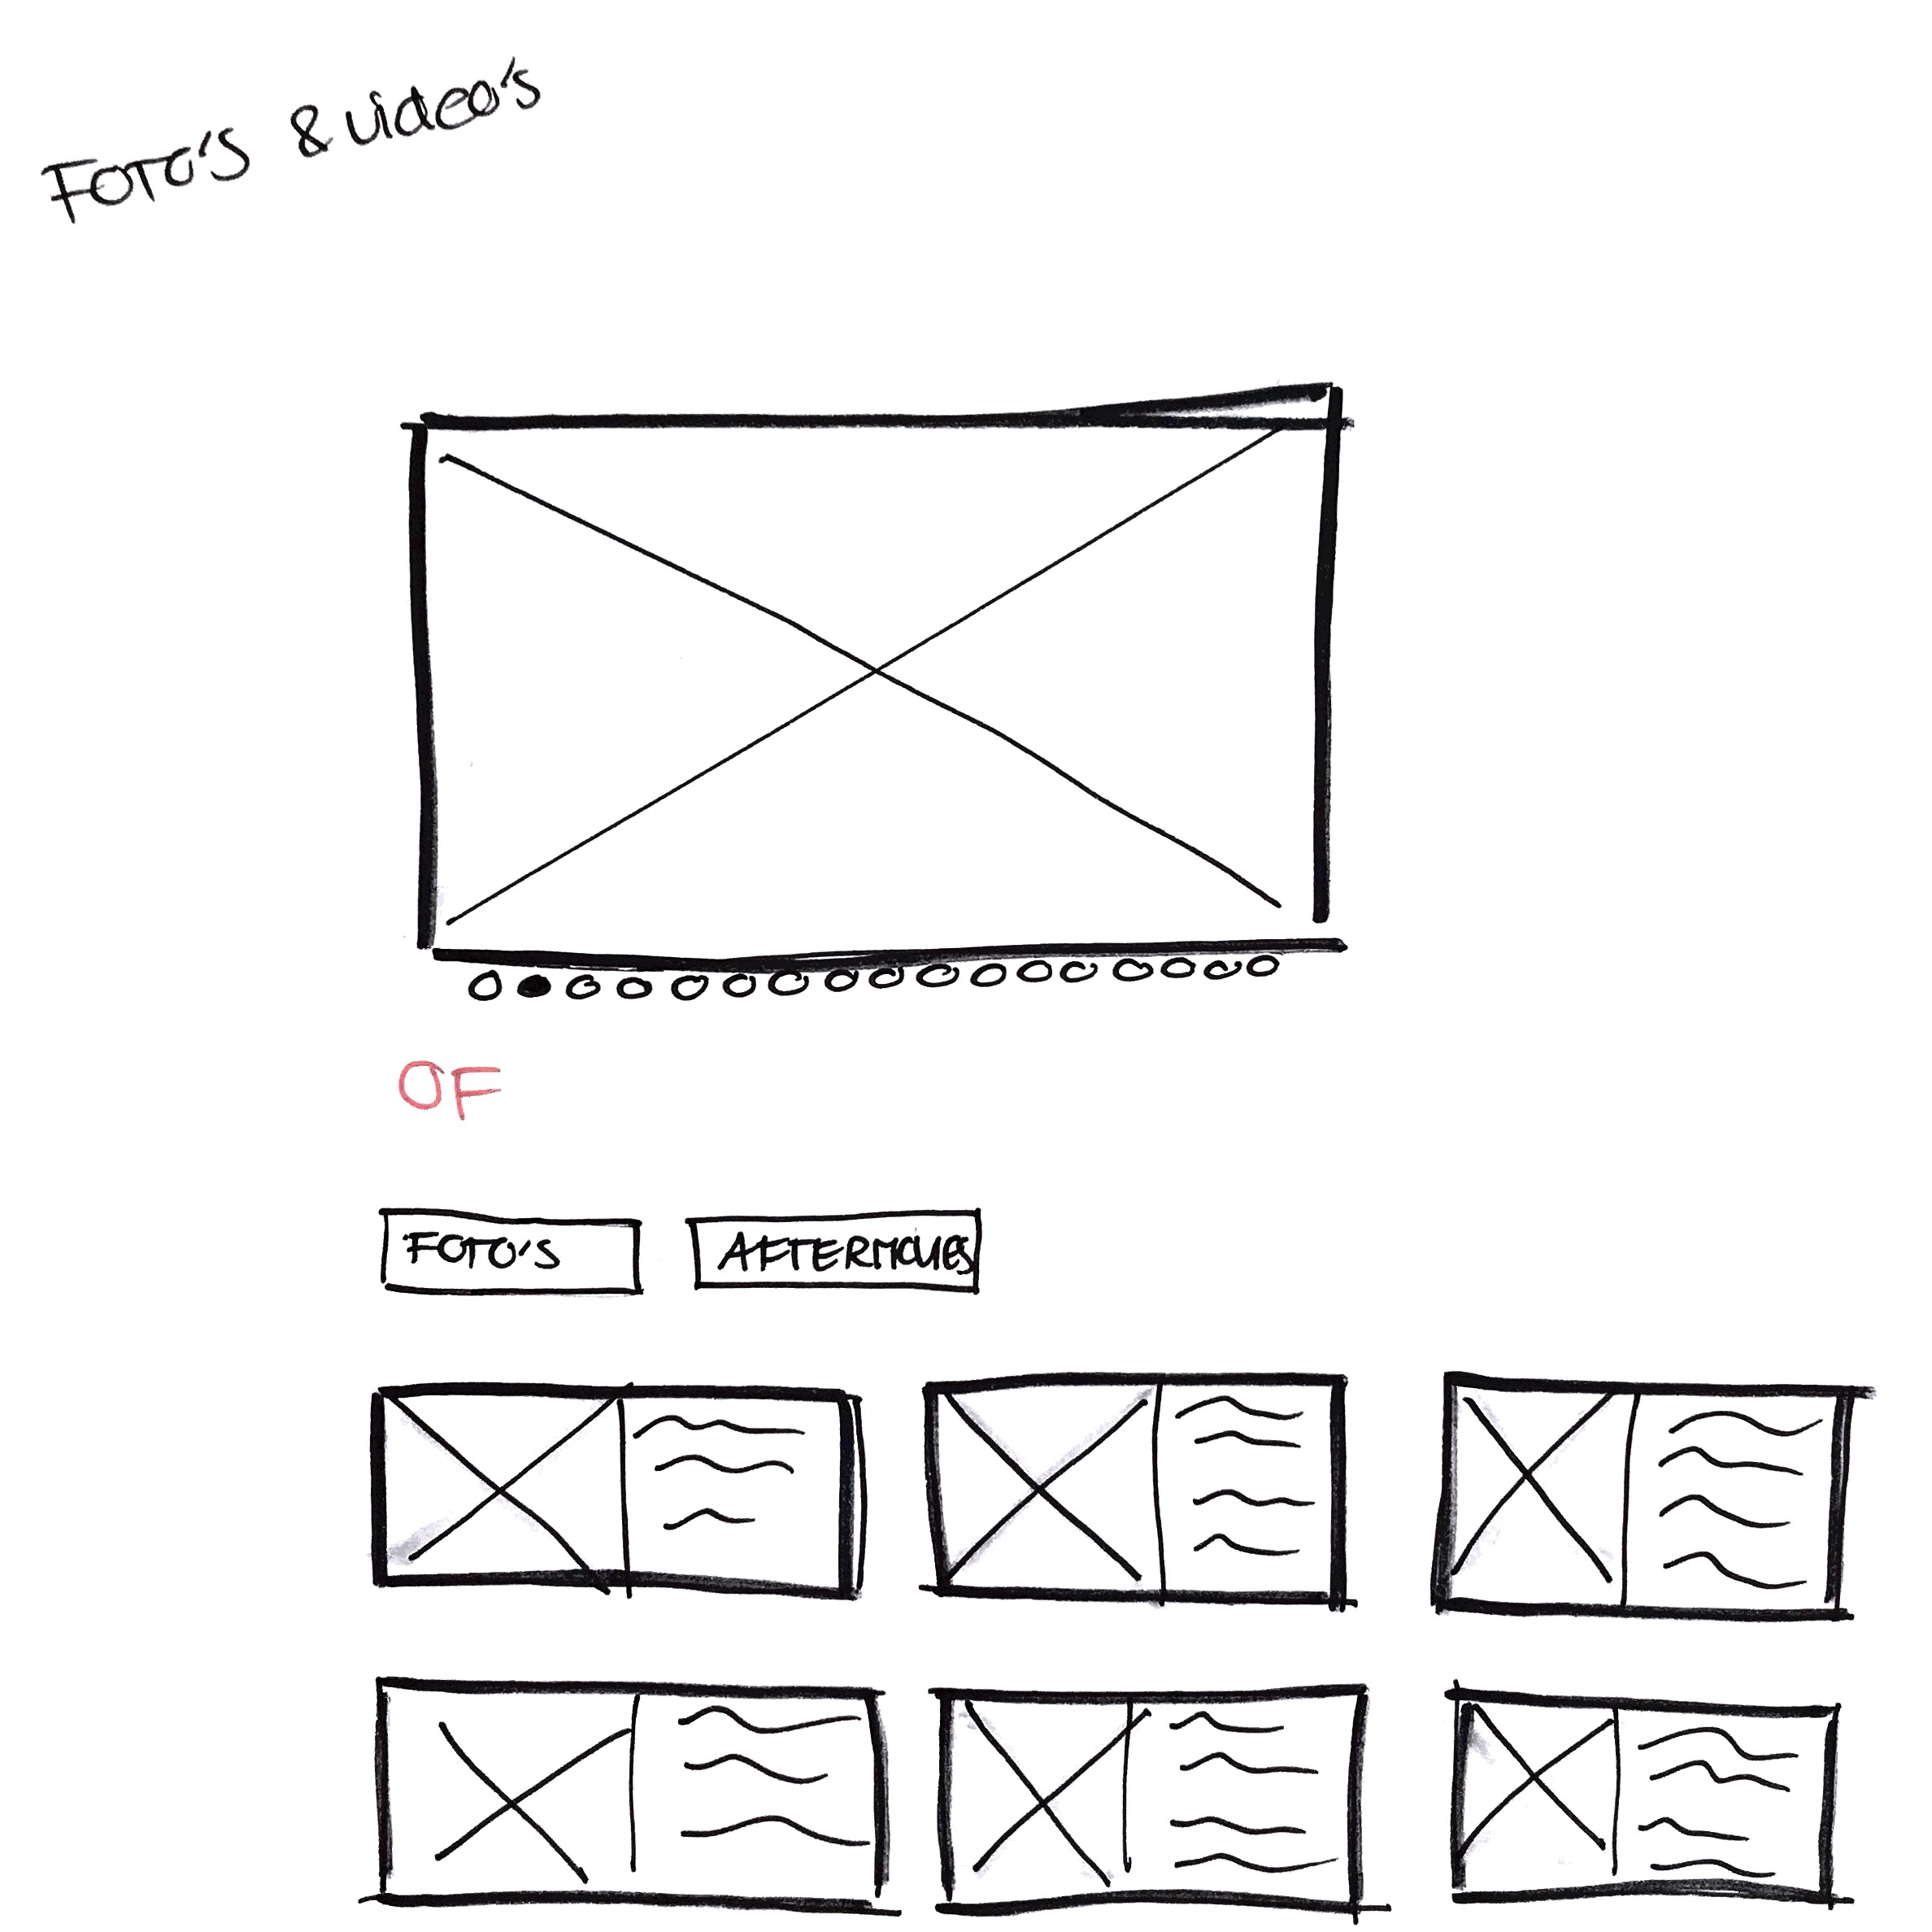 FOTO'S & video's
OF
FOTO'S
AFTERMOVIES